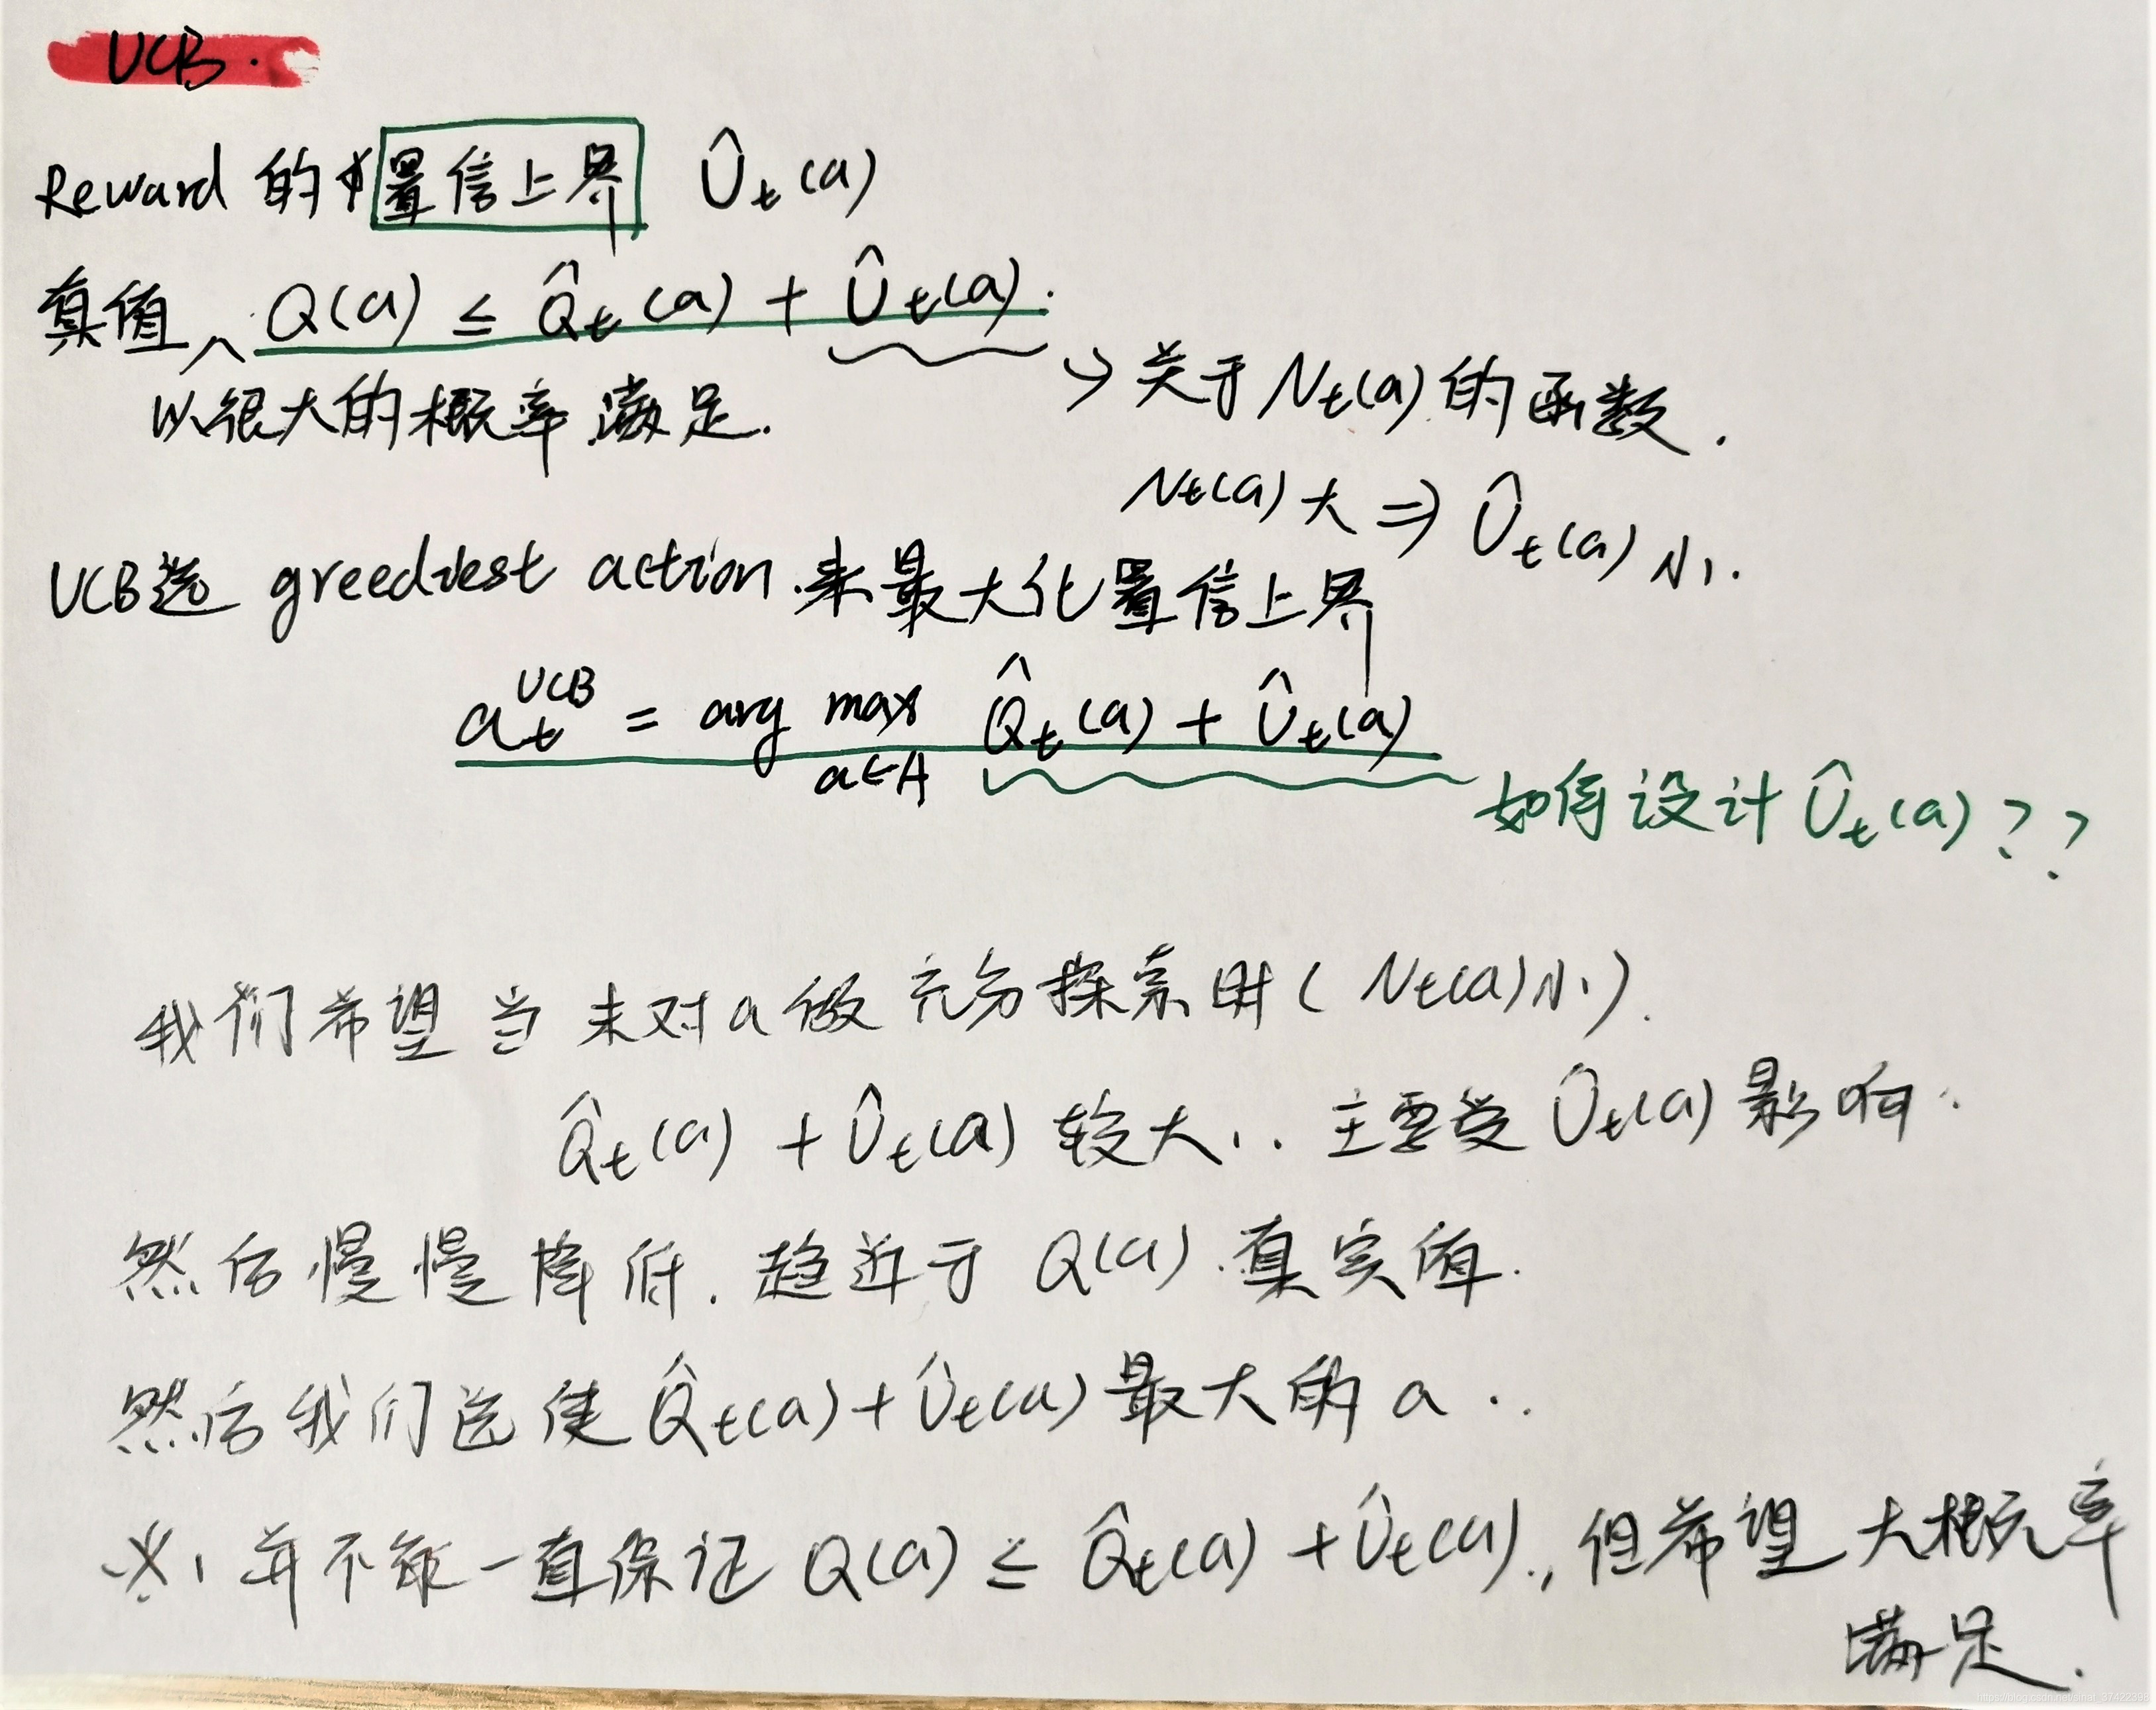 UCB.
Reward 的 置信上界 Û_t(a)
真值 Q(a) ≤ Q̂_t(a) + Û_t(a).
以很大的概率满足.
→ 关于 N_t(a) 的函数.
N_t(a) 大 ⇒ Û_t(a) 小.
UCB选 greediest action 来最大化置信上界
a_t^{UCB} = arg max_{a∈A} Q̂_t(a) + Û_t(a)
如何设计 Û_t(a) ??
我们希望当未对a做充分探索时 ( N_t(a) 小 ).
Q̂_t(a) + Û_t(a) 较大.. 主要受 Û_t(a) 影响.
然后慢慢降低. 趋近于 Q(a) 真实值.
然后我们选使 Q̂_t(a) + Û_t(a) 最大的 a ..
※, 并不能一直保证 Q(a) ≤ Q̂_t(a) + Û_t(a)., 但希望大概率
满足.